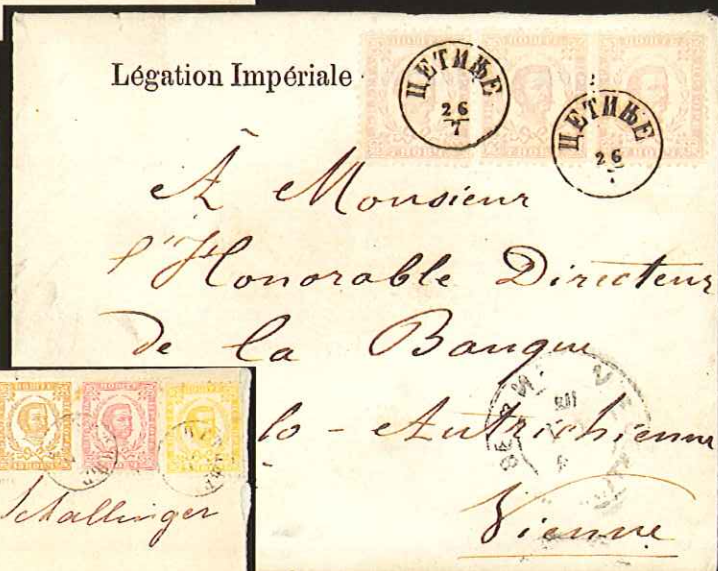 Légation Impériale
ЦЕТИЊЕ
26
7
ЦЕТИЊЕ
26
À Monsieur
l'Honorable Directeur
de la Banque
lo-Autrichienne
Vienne
Schallinger